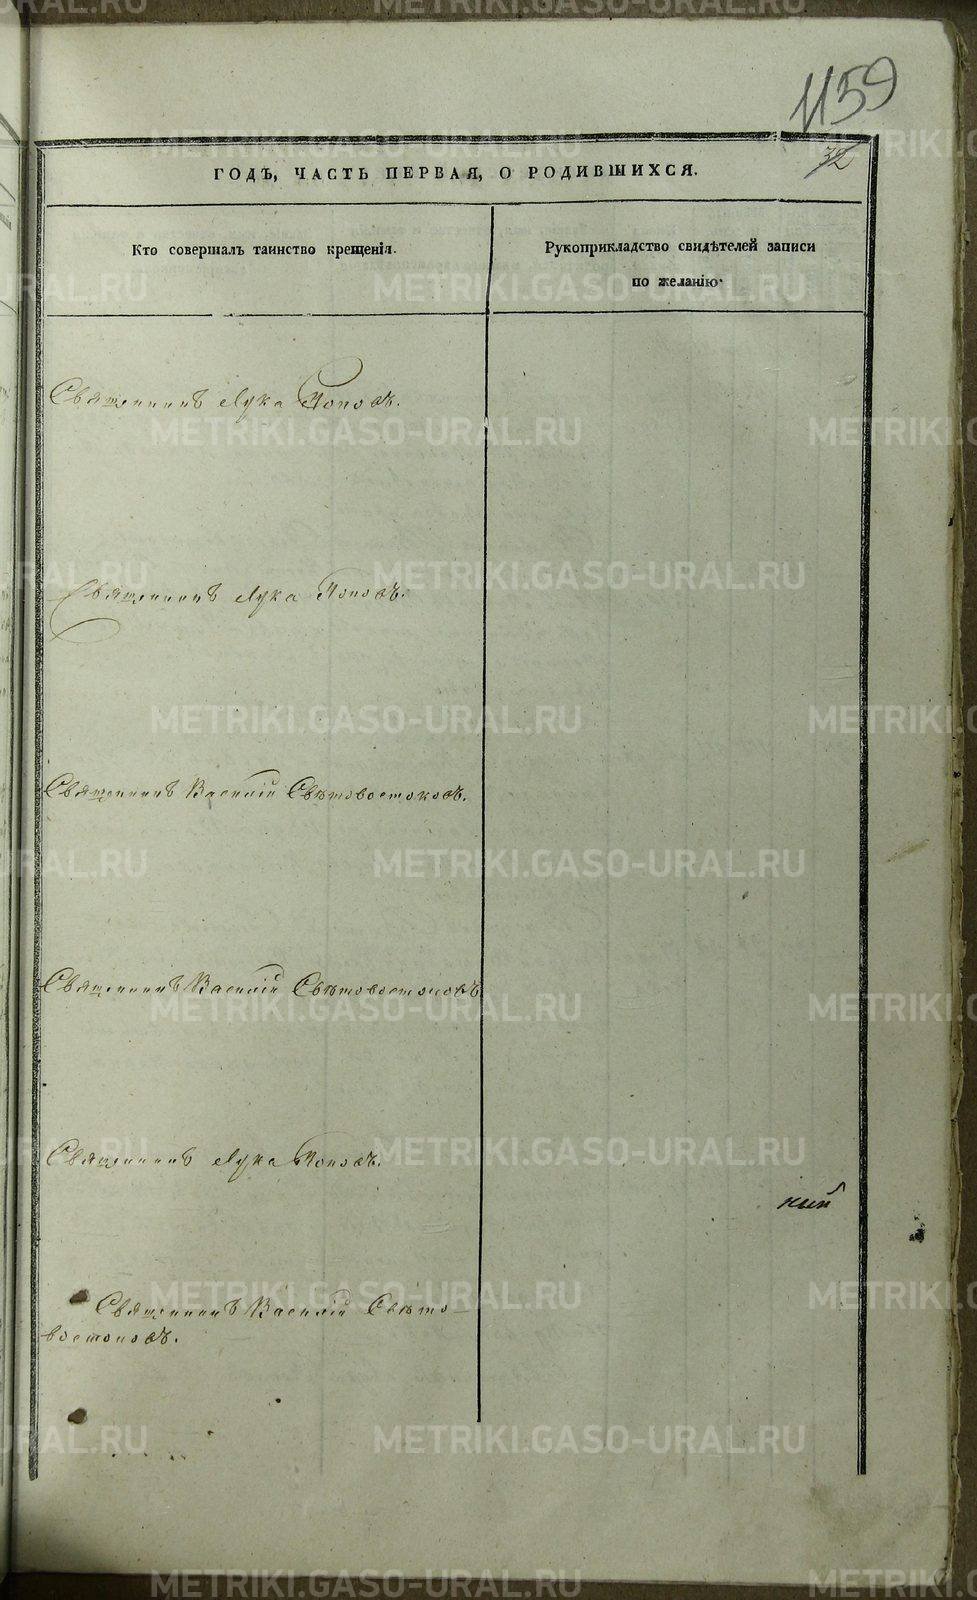 1159
32
ГОДЪ, ЧАСТЬ ПЕРВАЯ, О РОДИВШИХСЯ.
Кто совершалъ таинство крещенія.
Рукоприкладство свидѣтелей записи
по желанію·
Священникъ Лука Поповъ.
Священникъ Лука Поповъ.
Священникъ Василій Свѣтовостоковъ.
Священникъ Василій Свѣтовостоковъ
Священникъ Лука Поповъ.
ній
Священникъ Василій Свѣто–
востоковъ.
METRIKI.GASO-URAL.RU